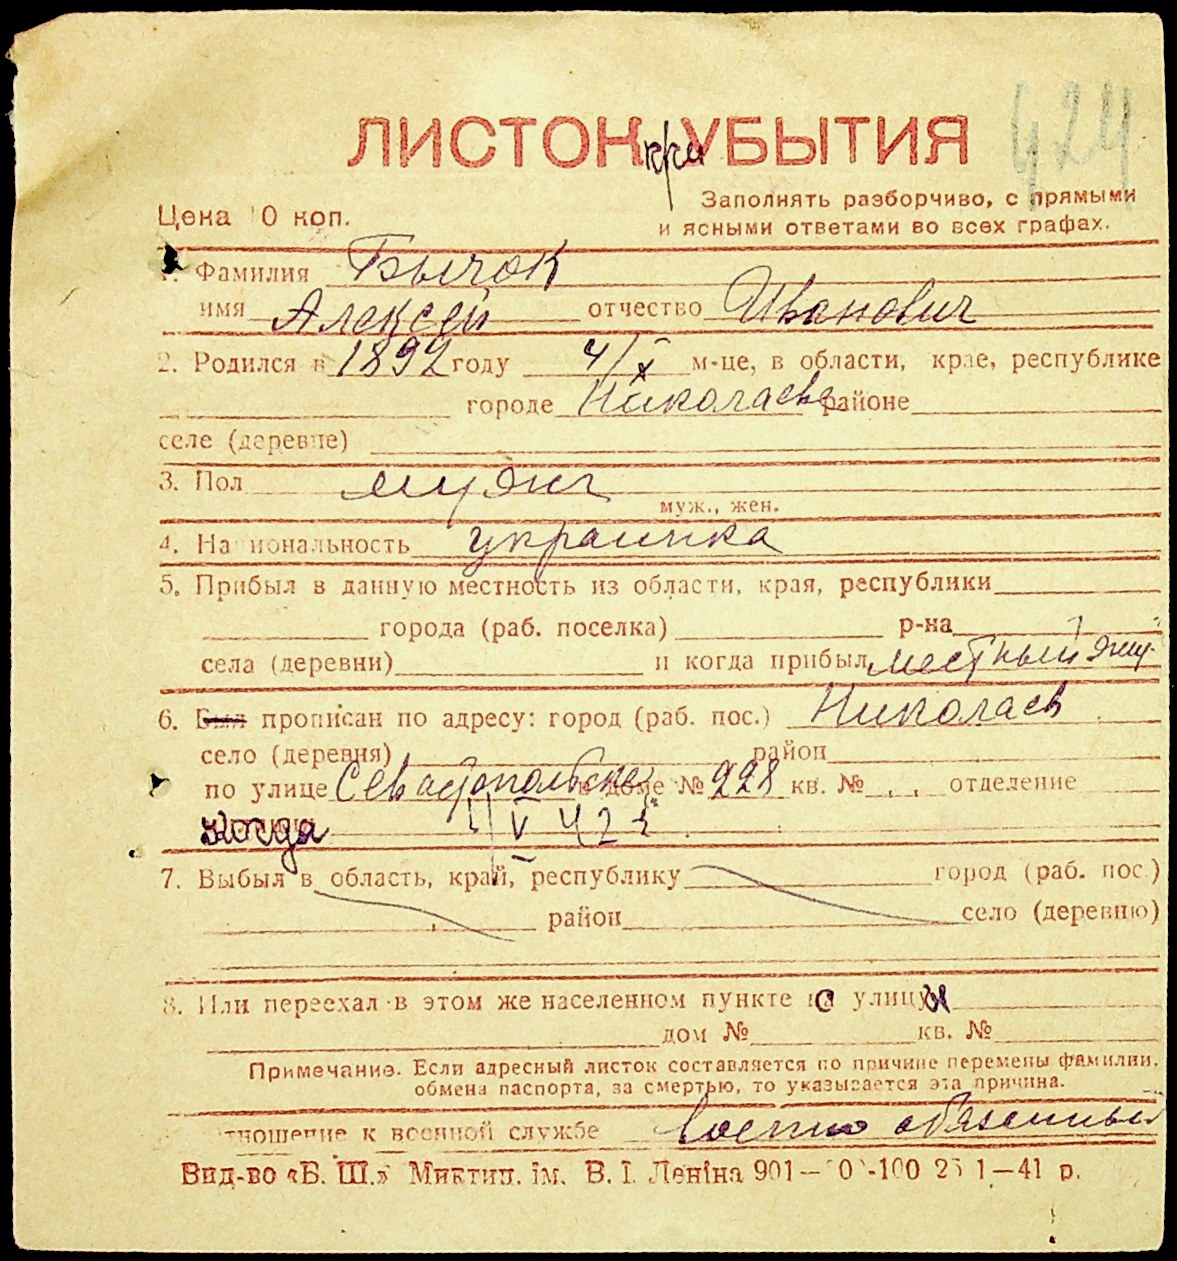 424
ЛИСТОК при УБЫТИЯ
Заполнять разборчиво, с прямыми
Цена 10 коп.
и ясными ответами во всех графах.
1. Фамилия Бычок
имя Алексей отчество Иванович
2. Родился в 1892 году 4/X м-це, в области, крае, республике
городе Николаеве районе
селе (деревне)
3. Пол мужч
муж., жен.
4. Национальность украинка
5. Прибыл в данную местность из области, края, республики
города (раб. поселка) р-на
села (деревни) и когда прибыл местный жит.
6. Был прописан по адресу: город (раб. пос.) Николаев
село (деревня) район
по улице Севастопольской в доме № 228 кв. № отделение
когда V 42
7. Выбыл в область, край, республику город (раб. пос.)
район село (деревню)
8. Или переехал в этом же населенном пункте с улицы
дом № кв. №
Примечание. Если адресный листок составляется по причине перемены фамилии,
обмена паспорта, за смертью, то указывается эта причина.
тношение к военной службе военно обязанный
Вид-во «Б. Ш.» Миктип. ім. В. І. Леніна 901— 0 -100 25 1—41 р.